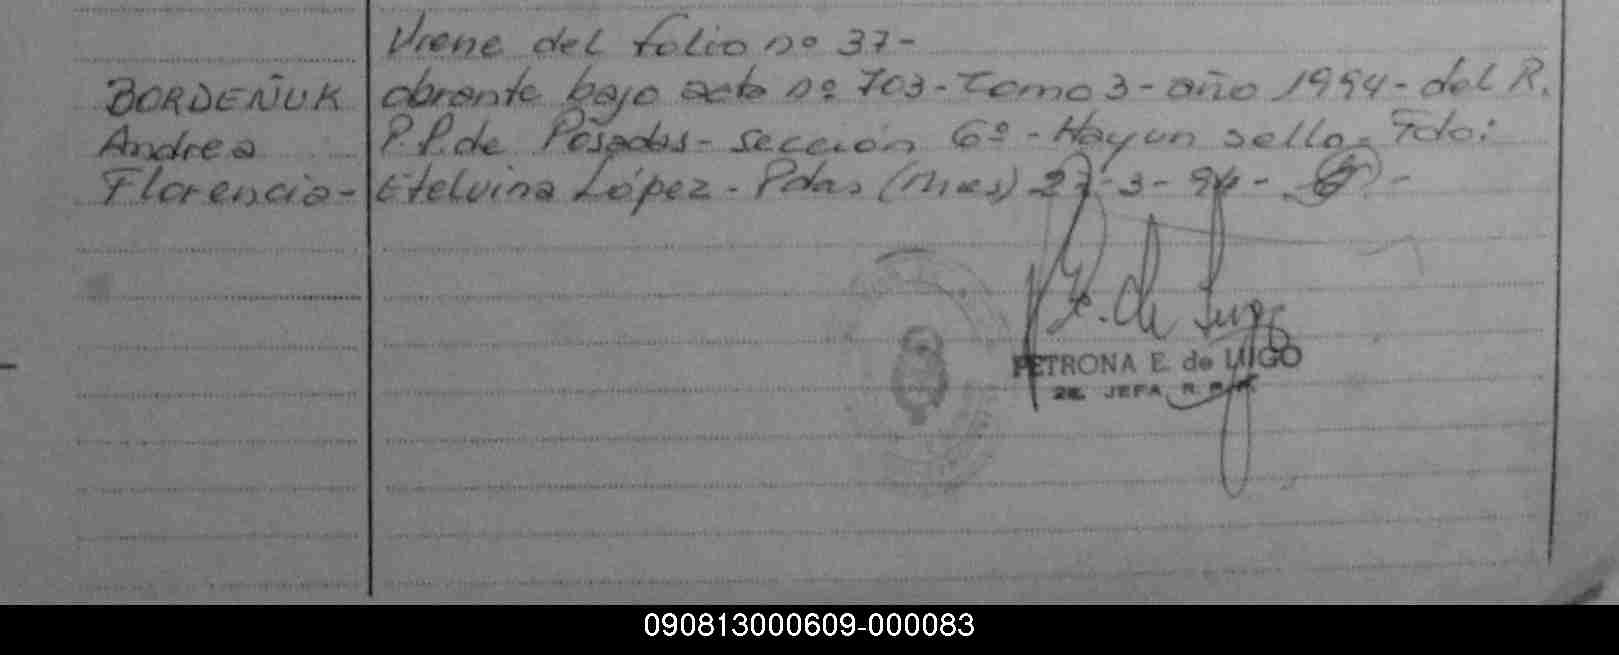 Viene del folio nº 37-
BORDEÑUK obrante bajo acta nº 703-Tomo 3-año 1994-del R.
Andrea P.P.de Posadas-sección 6º-Hay un sello-Fdo:
Florencia- Etelvina López-Pdas (Mnes) 27-3-94-
PETRONA E. de LUGO
2a. JEFA R.
090813000609-000083